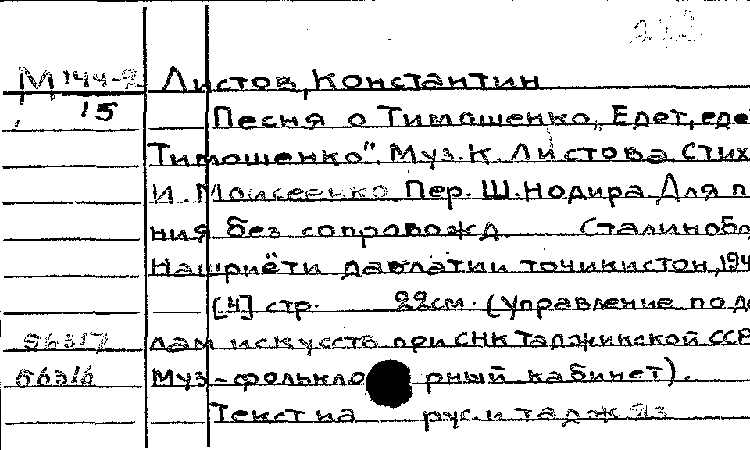 М 144-2 Листов, Константин
15 Песня о Тимошенко, „Едет, еде
Тимошенко". Муз. К. Листова Стих
И. Моисеенко Пер. Ш. Нодира Для п
ния без сопровожд. Сталиноба
Нашриёти давлатии точикистон, 194
[4] стр. 22см. (Управление по де
56317 лам искусств при СНК Таджикской ССР
56316 Муз-фолькло рный кабинет).
Текст на рус. и тадж яз